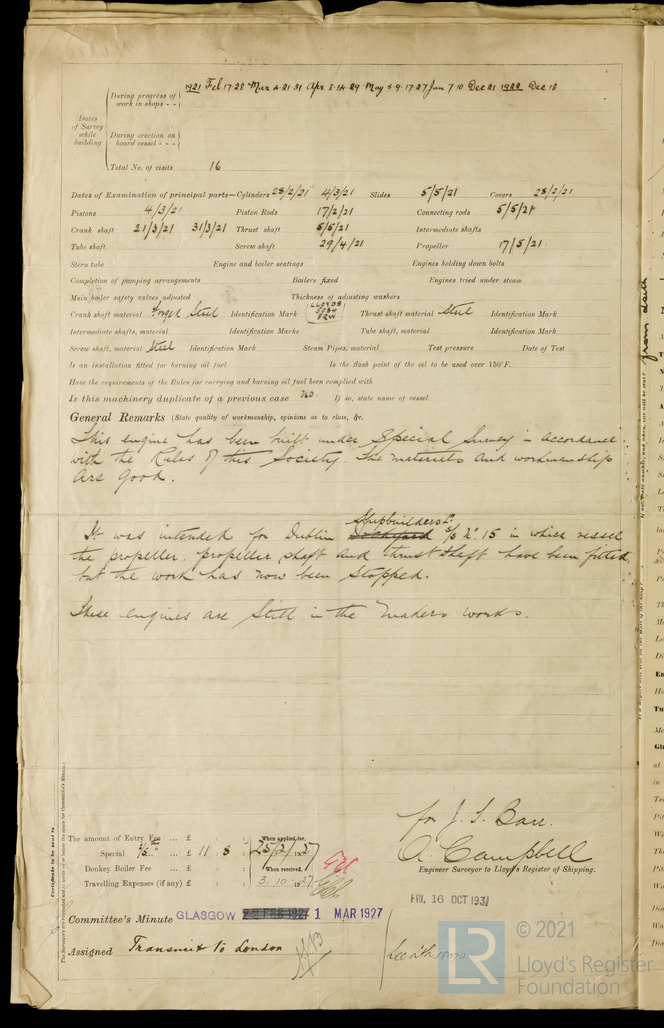 1921 Feb 17·28 Mar 4·21·31 Apr 8·14·29 May 5·9·17·27 Jun 7·10 Dec 21 1922 Dec 18
During progress of work in shops - -
Dates of Survey while building
During erection on board vessel - - -
Total No. of visits 16
Dates of Examination of principal parts—Cylinders 28/2/21 4/3/21 Slides 5/5/21 Covers 28/2/21
Pistons 4/3/21 Piston Rods 17/2/21 Connecting rods 5/5/21
Crank shaft 21/3/21 31/3/21 Thrust shaft 5/5/21 Intermediate shafts
Tube shaft Screw shaft 29/4/21 Propeller 17/5/21
Stern tube Engine and boiler seatings Engines holding down bolts
Completion of pumping arrangements Boilers fixed Engines tried under steam
Main boiler safety valves adjusted Thickness of adjusting washers
Crank shaft material Forged Steel Identification Mark LLOYDS Thrust shaft material Steel Identification Mark
Intermediate shafts, material Identification Marks Tube shaft, material Identification Mark
Screw shaft, material Steel Identification Mark Steam Pipes, material Test pressure Date of Test
Is an installation fitted for burning oil fuel Is the flash point of the oil to be used over 150°F.
Have the requirements of the Rules for carrying and burning oil fuel been complied with
Is this machinery duplicate of a previous case no. If so, state name of vessel
General Remarks (State quality of workmanship, opinions as to class, &c.
This engine has been built under Special Survey in accordance
with the Rules of this Society. The materials and workmanship
are good.
Shipbuilders Ld.
It was intended for Dublin Dockyard S/S No. 15 in which vessel
the propeller, propeller shaft and thrust shaft have been fitted,
but the work has now been stopped.
These engines are still in the makers works.
for J. S. Barr.
A. Campbell
Engineer Surveyor to Lloyd's Register of Shipping.
The amount of Entry Fee ... £ : : When applied for,
Special ... £ 11 : 8 : 25/2/1927
Donkey Boiler Fee ... £ : : When received,
Travelling Expenses (if any) £ : : 3·10·1927
FRI. 16 OCT 1931
Committee's Minute GLASGOW 22 FEB 1927 1 MAR 1927
Assigned Transmit to London
Certificate to be sent to
The Surveyors are requested not to write on or below the space for Committee's Minute.
LR
© 2021
Lloyd's Register
Foundation